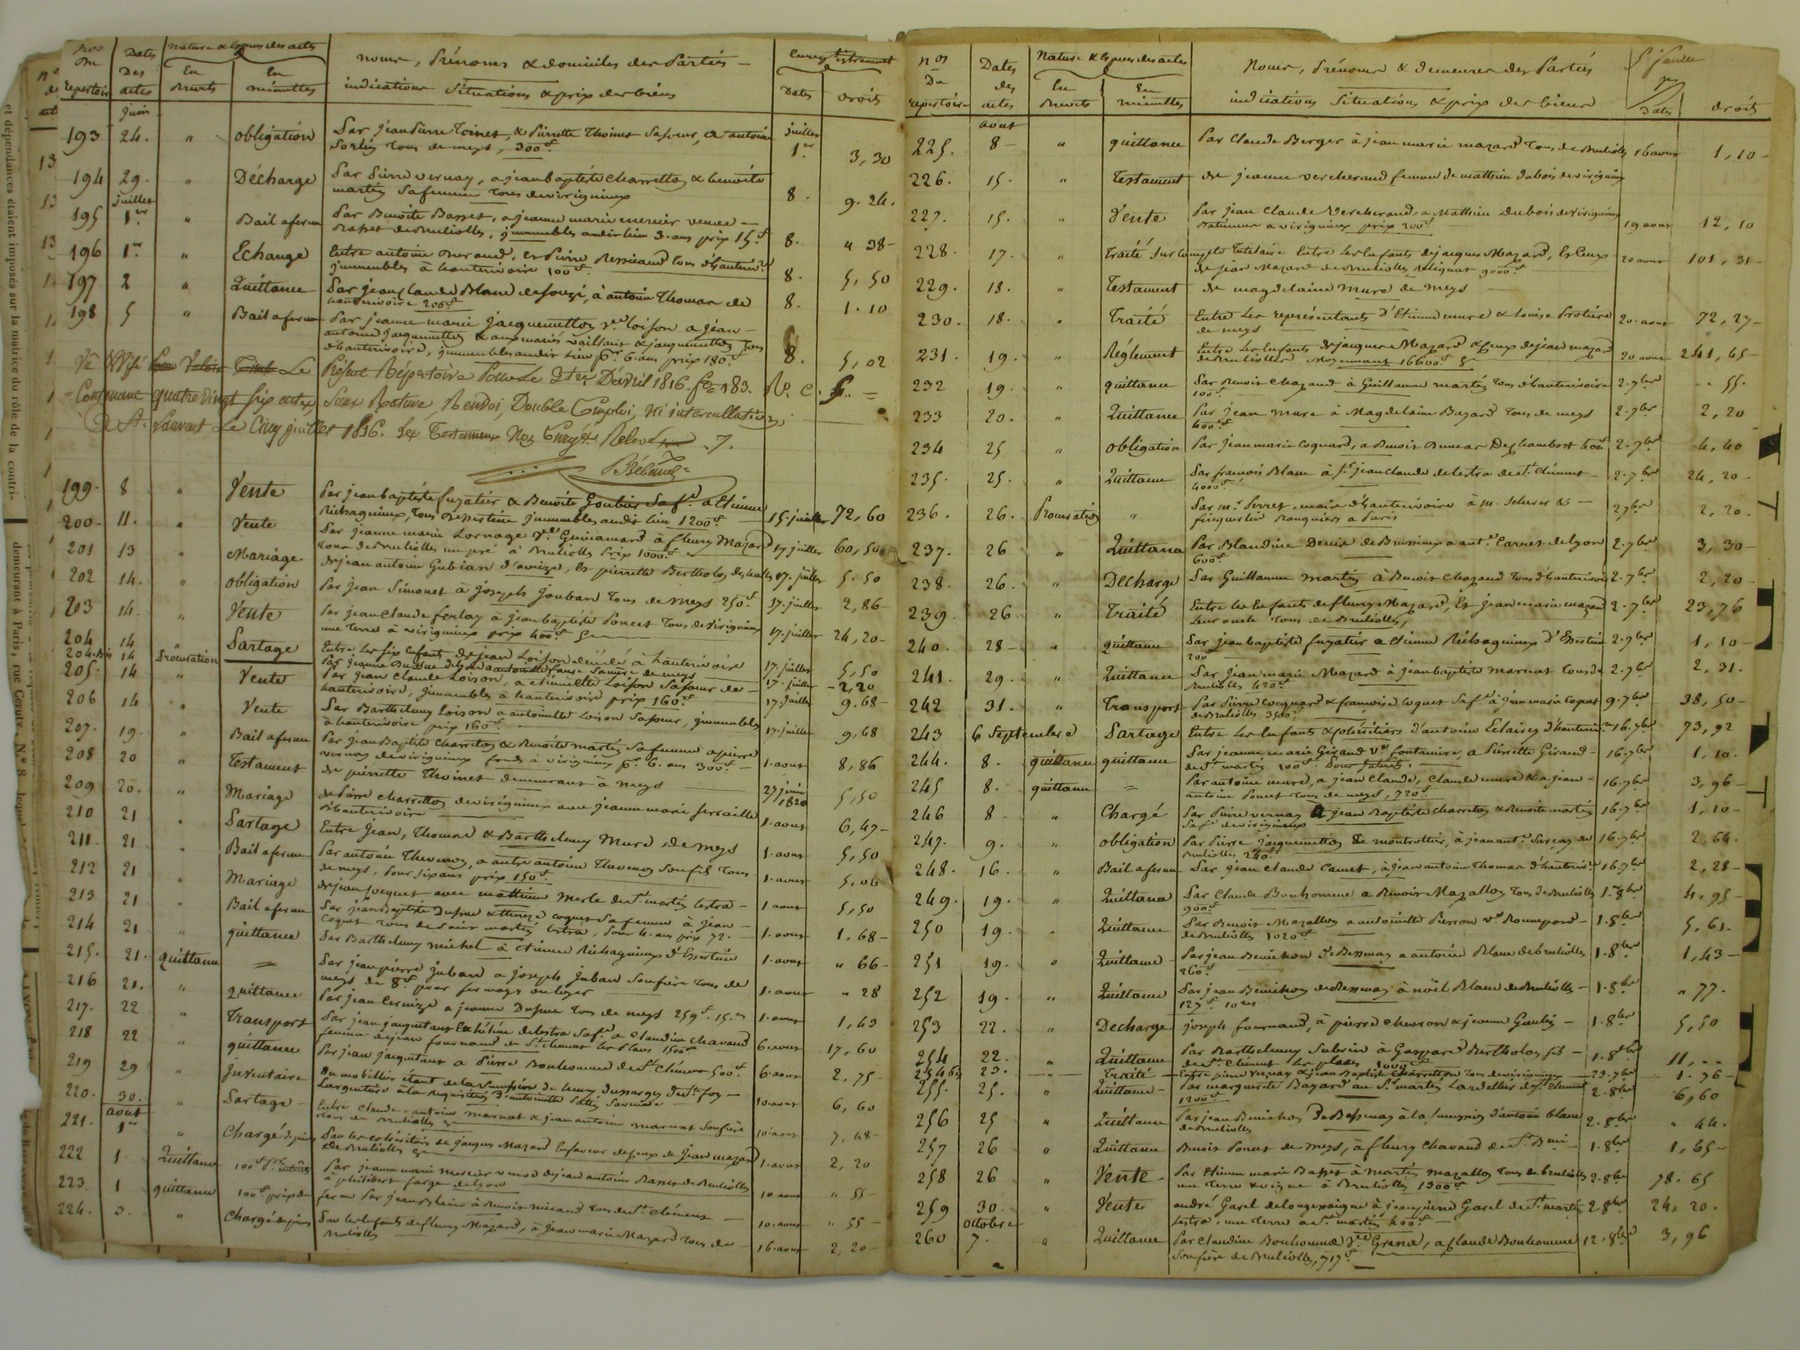 Nos Du repertoire
Dates Des actes
Nature & especes des actes
En Brevets
En minuttes
noms, Prénoms & domiciles des Parties
indications Situations & prix des biens
Dates
droits
juin
193 24. " obligation Par jean Pierre Toinet, & Pierrette Thoinet Sa Soeur, a antoine juillet
tous de meys, 300 f 1er 3,30
194 29. " Décharge Par Pierre vernay, a jean baptiste charretton & benoite
martin Sa femme tous de virigneux 8. 9.24.
juillet
195 1er " Bail a ferme Par Benoite Basset, a jeanne marie mercier veuve
Basset de Brullioles, immeubles audit lieu 3. ans prix 15 f 8. " 38
196 1er " Echange Entre antoine & Pierre tous d'hauterivoire
immeubles à hauterivoire 100 f 8. 5,50
197 2 " Quittance Par jean Claude Blanc de Souzi, à antoine Thomas de
hauterivoire 200 f 8. 1.10
198 5 " Bail a ferme Par jeanne marie jacquemetton ve loison a jean
antoine jacquemetton & aux mariés vaillant & jacquemetton tous
d'hauterivoire, immeubles audit lieu pr. 6 ans prix 180 f 8. 5,02
Vu & Visé Le Présent Répertoire Pour Le 2e D'avril 1816. fo 183. Ro. C. 6.
Contenant quatre vingt six actes Sans Rature Renvoi, Double Emploi, Ni intercallation
A St. Laurent Le Cinq juillet 1816. Les Testaments Non 7.
199. 8 " Vente Par jean baptiste fuzatier & Benoite Goubier Sa fe. a Etienne
Richagneux, tous immeubles audit lieu 1200 f 15. juillet 72,60
200 11. " Vente Par jeanne marie Lornage ve Guinamard à fleury Mazard
tous de Brullioles un pré à Brullioles Prix 1000 f 17 juillet 60,50
201 13 " Mariage De jean antoine Gubian d'aveize, & pierrette Bertholon des halles 17. juillet 5.50
202 14. " obligation Par jean Simonet à joseph jouban tous de meys 250 f 17. juillet 2,86
203 14. " Vente Par jean Claude ferlay à jean baptiste Poncet tous de virigneux
une terre à virigneux prix 400 f 17. juillet 24,20
204 14 " Partage Entre Les six Enfants de jean Loison décédé à hauterivoire 17. juillet 5,50
204 bis 14 Procuration 17. juillet 2,20
205. 14 " Vente Par jean Claude Loison, a etiennette Loison Sa Soeur de
hauterivoire, immeubles à hauterivoire prix 160 f 17. juillet 9.68
206 14 " Vente Par Barthelemy loison a antoinette Loison Sa Soeur, immeubles
à hauterivoire prix 160 f 17. juillet 9,68
207. 19. " Bail a ferme Par jean Baptiste charreton & Benoite martin Sa femme a pierre
vernay de virigneux fonds a virigneux pr. 6. ans 300 f 1. aout 8,86
208 20 " Testament de pierrette Thoinet demeurant à meys 27 juin 1820 5,50
209 20. " Mariage de Pierre charretton de virigneux avec jeanne marie ferraille
d'hauterivoire 1. aout 6,47
210 21 " Partage Entre Jean, Thomas & Barthelemy Mure de meys 1. aout 5,50
211. 21 " Bail a ferme Par antoine Thevenon, a autre antoine Thevenon Son fils tous
de meys, Pour Six ans prix 150 f 1. aout 5,06
212 21 " Mariage de jean Jocquet avec mathieue Merle de St. martin lestra 1 aout 5,50
213 21 " Bail a ferme Par jean Baptiste Dufour & therese coquet Sa femme à Jean
Coquet tous de Saint martin Lestra, Pour 4. ans prix 72. 1. aout 1,68
214 21 " quittance Par Barthelemy michel à Etienne Richagneux d'Essertine 1. aout " 66
215. 21. Quittance Par jean pierre juban a joseph Juban Son frère tous de
meys de 8 f pour fermage ou loyer 1. aout " 28
216 21. " quittance Par jean Cernize a jeanne Dufour tous de meys 259 f. 15. 1. aout 1,43
217. 22 " Transport Par jean jaquetant Cultivateur de lestra Sa fe. a claudine chavaud
femme de jean fournand de St. clement les Places 1500 f 6. aout 17,60
218 22 " quittance Par jean jaquetant a Pierre Bonhomme de St. Clement 500 f 6. aout 2,75
219 29 " Inventaire Du mobilier étant de la Succession de Remy de Ste. foy
Largentière à la requisition d'antoinette Sa veuve 10. aout 6,60
220. 30. " Partage Entre Claude antoine marnat & jean antoine marnat Son frère
tous de Brullioles 10 aout 7,48
aout
221. 1er " Chargé de pièces Par les cohéritiers de Jacques Mazard En faveur de ceux de Jean mazard
de Brullioles 1. aout 2,20
222 1 Quittance 100 f Par jeanne marie mercier veuve de jean antoine Basset de Brullioles
à philibert farge de lyon 10 aout " 55
223 1 quittance 100 f prix de ferme Par jean à Benoit tous de St. Clement 10. aout " 55
224. 3. " Chargé de pièces Par les Enfants de fleury Mazard, à Jean marie Mazard tous de
Brullioles 16. aout 2,20
nos Du repertoire
Dates des actes
Nature & especes des actes
En Brevets
En minuttes
Noms, Prénoms & demeures des Parties
indications Situations & prix des biens
Dates
droits
aout
225. 8 " quittance Par Claude Berger à jean marie mazard tous de Brullioles 16 aout 1,10
226. 15. " Testament de jeanne vercherand femme de mathieu dubois de virigneux
227. 15. " Vente Par jean Claude Vercherand, a Mathieu Dubois de virigneux
Batiment a virigneux prix 200 f 19 aout 12,10
228. 17. " Traité Sur Compte Tutelaire Entre les Enfants de jacques Mazard, & Ceux
de jean Mazard de Brullioles Reliquat 9000 f 20 aout 101,31
229. 18. " Testament de magdelaine mure de meys
230. 18. " Traité Entre les représentants d'Etienne mure & Louise Protière
de meys 20. aout 72,27
231. 19. " Réglement Entre Les Enfants de jacques Mazard & Ceux de jean mazard
de Brullioles Moyennant 16600 f 20 aout 241,65
232 19. " quittance Par Benoit chazaud à Guillaume martin tous d'hauterivoire
100 f 2.7bre " 55.
233 20. " Quittance Par jean mure à Magdelaine Bazard tous de meys
400 f 2.7bre 2,20
234 25 " obligation Par Jean marie Coquard, a Benoit Deschambost 400 f 2.7bre 4,40
235. 25. " Quittance Par françois Blanc à Sr. jean claude delestra de St. clément
4000 f 2.7bre 24,20
236. 26. Procuration " Par Mr. Perret, maire d'hauterivoire à M. Scherer &
Banquiers a Paris 2 7bre 2,20
237. 26 " Quittance Par Blandine Denis de Bussieres a ant. Carret de lyon
600 f 2.7bre 3,30
238. 26. " Decharge Par Guillaume martin à Benoit Chazaud tous d'hauterivoire 2.7bre 2,20
239. 26 " Traité Entre les Enfants de fleury Mazard, Et jean marie mazard
Leur oncle tous de Brullioles, 2.7bre 23,76
240. 28 " quittance Par jean baptiste fuzatier a etienne Richagneux d'Essertine
200 f 2.7bre 1,10
241. 29. " Quittance Par Jean marie Mazard à Jean baptiste Marnat tous de
Brullioles 420 f 2.7bre 2,31.
242 31. " Transport Par Pierre Cocquard & françoise Coquet Sa fe. à jean marie Coquet
de Brullioles 3500 f 9.7bre 38,50
243 6 Septembre " Partage Entre les Enfants & cohéritiers d'antoine Eclairey d'hauterivoire 16.7bre 73,92
244. 8. quittance quittance Par jeanne marie Giraud ve fontaniere, a Pierrette Giraud
de St. martin 100 f Pour 16.7bre 1,10.
245 8. quittance = Par antoine mure, a jean Claude, Claude mure & a jean
antoine Poncet tous de meys, 720 f 16.7bre 3,96
246 8 " Chargé Par Pierre vernay a jean Baptiste charreton & Benoite martin
Sa fe. de virigneux 16.7bre 1,10
247. 9. " obligation Par Pierre Jacquemetton de montrottier, à jean ant. Sarcey de
Brullioles 240 f 16.7bre 2,64.
248. 16. " Bail a ferme Par Jean Claude Camet, à jean antoine Thomas d'hauterivoire 16.7bre 2,28
249. 19. " Quittance Par Claude Bonhomme a Benoit Mazallon tous de Brullioles
900 f 1.8bre 4,95
250 19. " Quittance Par Benoit Mazallon a antoinette Pierron ve Bonnepart
de Brullioles 1020 f 1.8bre 5,61.
251 19. " Quittance Par jean Benichon de Bessenay a antoine Blanc de brullioles
260 f 1.8bre 1,43
252 19. " Quittance Par jean Benichon de Bessenay à noël Blanc de Brullioles
127 f. 10 1.8bre " 77.
253 22. " Decharge joseph fournand, à pierre chevron & jeanne Goubin 1.8bre 5,50
254 22. " Quittance Par Barthelemy Subrin à Gaspard Bertholon fils
de St. Clement les places 2000 f 1.8bre 11,"
254 bis 23. Traité Entre pierre vernay & jean Baptiste Charretton tous de virigneux 23.7bre 1.76
255. 25. " Quittance Par marguerite Bazard au Sr. martin Lardellier de St. Clement
1200 f 2.8bre 6,60
256 25 " Quittance Par jean Benichon de Bessenay à la Succession d'antoine blanc
de Brullioles 2.8bre " 44.
257 26 " Quittance Benoit Poncet de meys, à fleury Chavand de St. 1.8bre 1,65
258 26 " Vente Par Etienne marie Basset à martin mazallon tous de brullioles
une terre & vigne à Brullioles 1300 f 2.8bre 78.65
259 30. " Vente andré Garel de longessaigne à jean pierre Garel de St. martin
Lestra, une terre a St. martin 400 f 2.8bre 24,20.
octobre
260 7. " Quittance Par Claudine Bonhomme ve Grand, a Claude Bonhomme
Son frère de Brullioles, 717 f. 12.8bre 3,96
et dépendances étaient imposés sur la matrice du rôle de la contri-
demeurant à Paris, rue Cerutty, N° 8